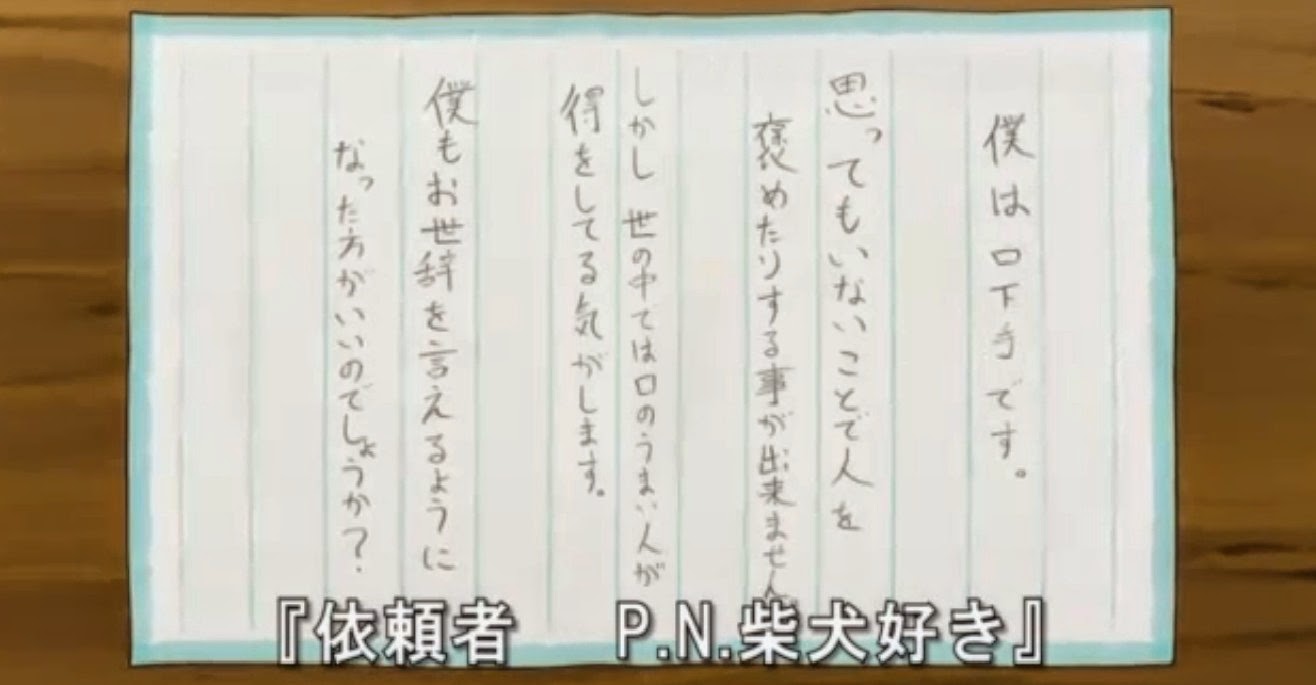 僕は口下手です。
思ってもいないことで人を
褒めたりする事が出来ません
しかし 世の中では口のうまい人が
得をしてる気がします。
僕もお世辞を言えるように
なった方がいいのでしょうか？
『依頼者　　P.N.柴犬好き』